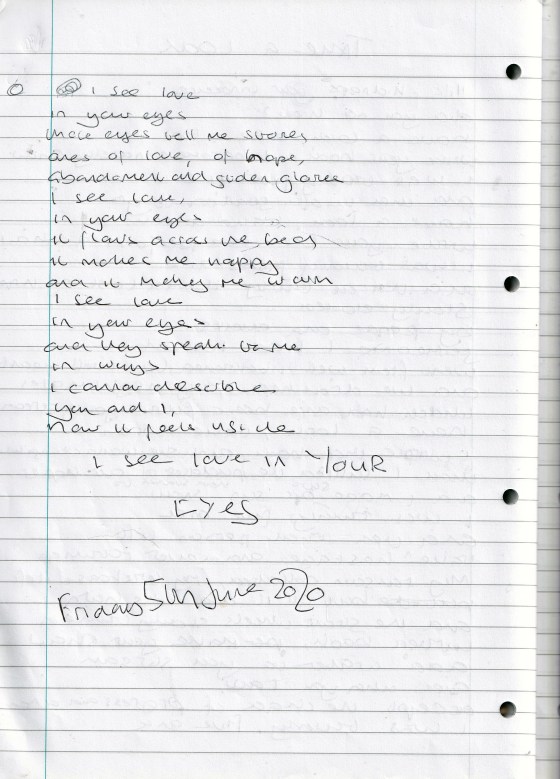 I see love
in your eyes
those eyes tell me stories
ones of love, of hope,
abandoment and golden glories
I see love,
in your eyes
it flows across the bed
it makes me happy
and it makes me warm
I see love
in your eyes
and they speak to me
in ways
I cannot describe
you and I,
how it feels inside
I see love in YOUR
EYES
Friday 5th June 2020